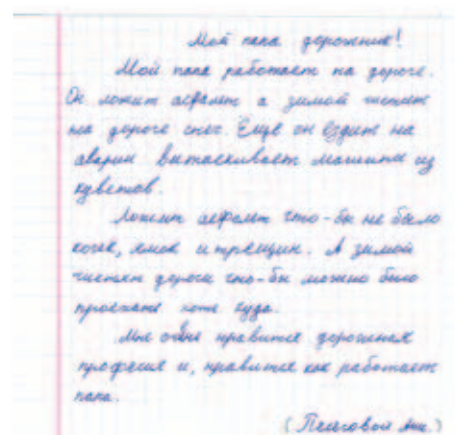 Мой папа дорожник!
Мой папа работает на дороге.
Он ложит асфальт а зимой чистит
на дороге снег. Ещё он ездит на
аварии вытаскивает машины из
кюветов.
Ложит асфальт что-бы не было
кочек, ямок и трещин. А зимой
чистят дороги что-бы можно было
проехать хоть куда.
Мне очень нравится дорожная
професия и, нравится как работает
папа.